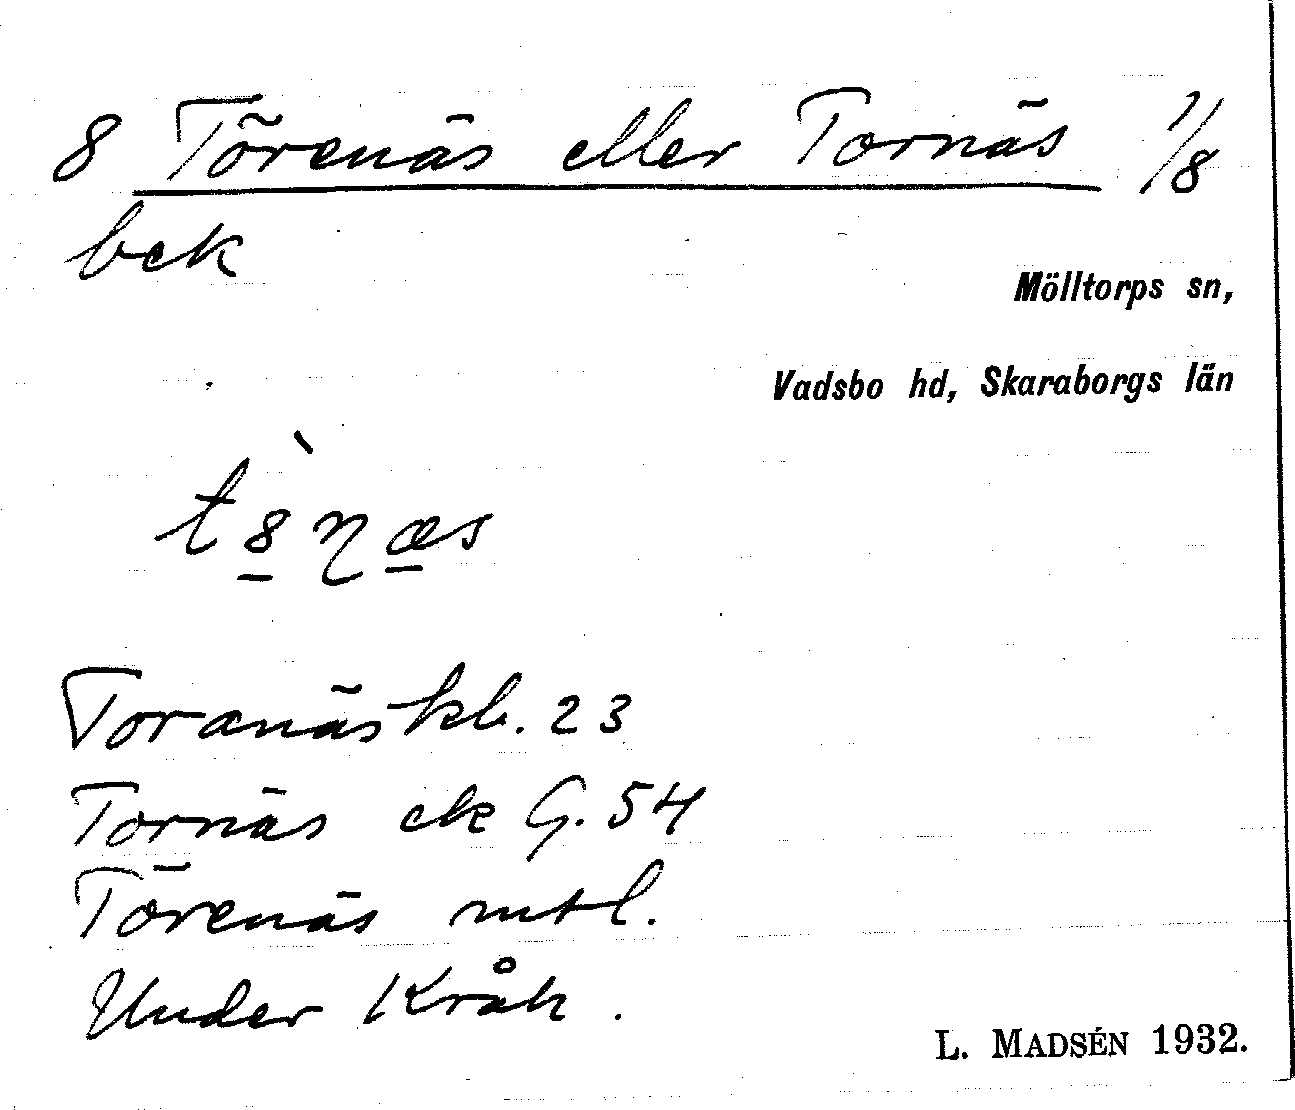 8 Törenäs eller Tornäs 1/8
bek
Mölltorps sn,
Vadsbo hd, Skaraborgs län
t8̠̀ŋæ̠s
Toranäs kb. 23
Tornäs ek G. 54
Törenäs mtl.
Under Kråk.
L. MADSÉN 1932.